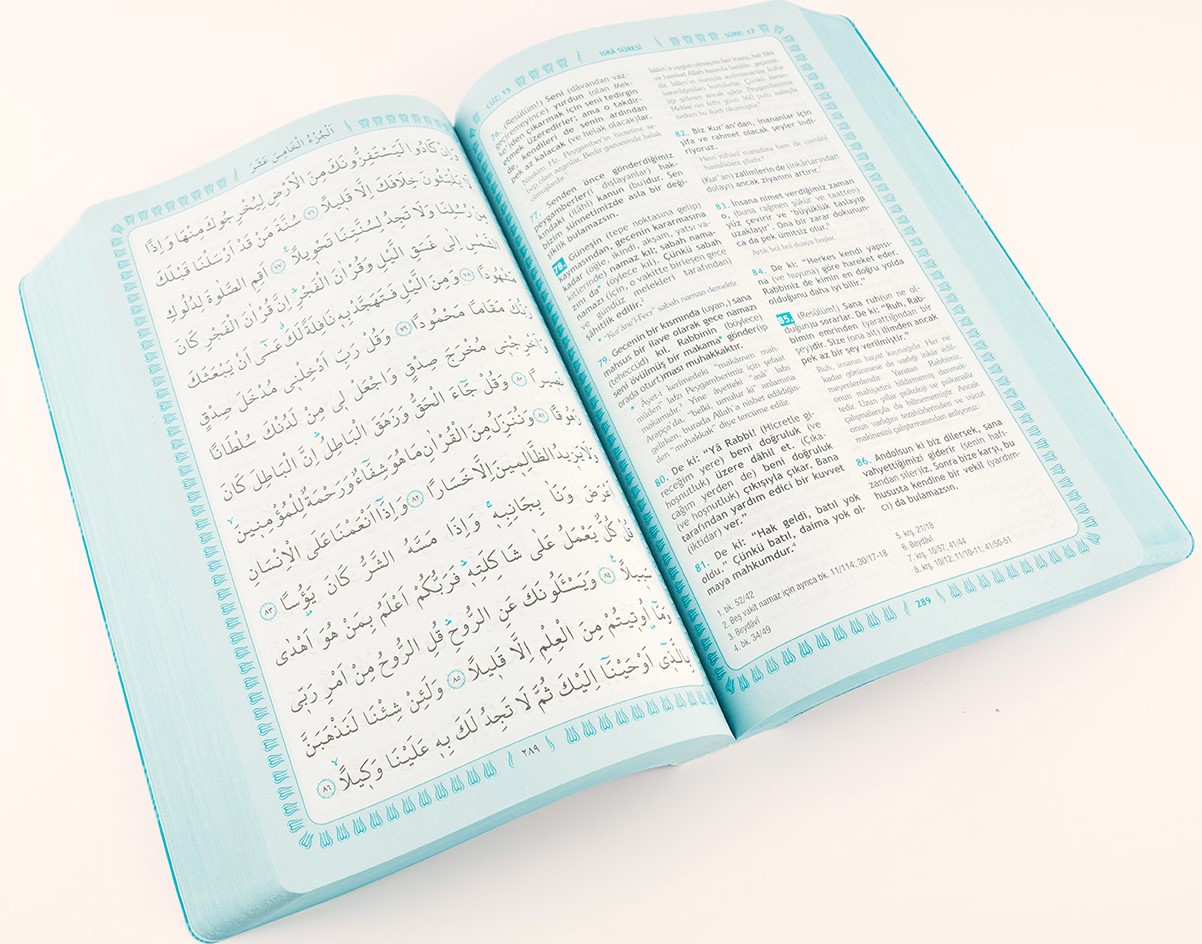 اَلْجُزْءُ الْخَامِسَ عَشَرَ
وَاِنْ كَادُوا لَيَسْتَفِزُّونَكَ مِنَ الْاَرْضِ لِيُخْرِجُوكَ مِنْهَا وَاِذًا
لَا يَلْبَثُونَ خِلَافَكَ اِلَّا قَلِيلًا ٧٦ سُنَّةَ مَنْ قَدْ اَرْسَلْنَا قَبْلَكَ
مِنْ رُسُلِنَا وَلَا تَجِدُ لِسُنَّتِنَا تَحْوِيلًا ٧٧ اَقِمِ الصَّلٰوةَ لِدُلُوكِ
الشَّمْسِ اِلٰى غَسَقِ الَّيْلِ وَقُرْاٰنَ الْفَجْرِ اِنَّ قُرْاٰنَ الْفَجْرِ كَانَ
مَشْهُودًا ٧٨ وَمِنَ الَّيْلِ فَتَهَجَّدْ بِهٖ نَافِلَةً لَكَ عَسٰٓى اَنْ يَبْعَثَكَ
رَبُّكَ مَقَامًا مَحْمُودًا ٧٩ وَقُلْ رَبِّ اَدْخِلْنٖى مُدْخَلَ صِدْقٍ
وَاَخْرِجْنٖى مُخْرَجَ صِدْقٍ وَاجْعَلْ لٖى مِنْ لَدُنْكَ سُلْطَانًا
نَصٖيرًا ٨٠ وَقُلْ جَٓاءَ الْحَقُّ وَزَهَقَ الْبَاطِلُ اِنَّ الْبَاطِلَ كَانَ
زَهُوقًا ٨١ وَنُنَزِّلُ مِنَ الْقُرْاٰنِ مَا هُوَ شِفَٓاءٌ وَرَحْمَةٌ لِلْمُؤْمِنٖينَ
وَلَا يَزٖيدُ الظَّالِمٖينَ اِلَّا خَسَارًا ٨٢ وَاِذَٓا اَنْعَمْنَا عَلَى الْاِنْسَانِ
اَعْرَضَ وَنَاٰ بِجَانِبِهٖ وَاِذَا مَسَّهُ الشَّرُّ كَانَ يَؤُسًا ٨٣
قُلْ كُلٌّ يَعْمَلُ عَلٰى شَاكِلَتِهٖ فَرَبُّكُمْ اَعْلَمُ بِمَنْ هُوَ اَهْدٰى
سَبٖيلًا ٨٤ وَيَسْـَٔلُونَكَ عَنِ الرُّوحِ قُلِ الرُّوحُ مِنْ اَمْرِ رَبّٖى
وَمَٓا اُوتٖيتُمْ مِنَ الْعِلْمِ اِلَّا قَلٖيلًا ٨٥ وَلَئِنْ شِئْنَا لَنَذْهَبَنَّ
بِالَّذٖٓى اَوْحَيْنَٓا اِلَيْكَ ثُمَّ لَا تَجِدُ لَكَ بِهٖ عَلَيْنَا وَكٖيلًا ٨٦
٢٨٩
CÜZ: 15
İSRÂ SÛRESİ
SÛRE: 17
76. (Resûlüm!) Seni (dâvandan vaz-
geçiremeyince) yurdun (olan Mek-
ke')den çıkarmak için seni tedirgin
etmek üzeredirler; ama o takdir-
de kendileri de senin ardından
pek az kalacak (ve helak olacak)lar.
Nitekim Hz. Peygamber'in hicretine se-
bep olan azgınlar, Bedir gazvesinde helak
olmuşlardır.
77. Senden önce gönderdiğimiz
peygamberler(i dışlayanlar) hak-
kındaki (ilâhî) kanun (bu)dur. Sen
bizim sünnetimizde asla bir deği-
şiklik bulamazsın.
78. Güneşin (tepe noktasına gelip)
kaymasından, gecenin kararmasına
kadar (öğle, ikindi, akşam, yatsı va-
kitlerinde) namaz kıl; sabah nama-
zını da* (öylece kıl). Çünkü sabah
namazı (için, o vakitte birleşen gece
ve gündüz melekleri tarafından)
şâhitlik edilir.²
* "Kur'âne'l-Fecr" sabah namazı demektir.
79. Gecenin bir kısmında (uyan,) sana
mahsus bir ilave olarak gece namazı
(teheccüd) kıl. Rabbinin (böylece)
seni övülmüş bir makama* gönderip
orada oturtması muhakkaktır.
* Âyet-i kerîmedeki "makâmen mah-
mûden" lafzı Peygamberimiz için şefaat
makamıdır.³ Yine âyetteki "asâ" lafzı
Arapça'da, "belki, umulur ki" anlamına
gelirken, burada Allah'a nisbet edildiğin-
den "muhakkak" diye tercüme edilir.
80. De ki: "Yâ Rabbi! (Hicretle gi-
receğim yere) beni doğruluk (ve
hoşnutluk) üzere dâhil et. (Çıka-
cağım yerden de) beni doğruluk
(ve hoşnutluk) çıkışıyla çıkar. Bana
tarafından yardım edici bir kuvvet
(iktidar) ver."
81. De ki: "Hak geldi, batıl yok
oldu." Çünkü batıl, daima yok ol-
maya mahkumdur.⁴
82. Biz Kur'an'dan, inananlar için
şifa ve rahmet olacak şeyler indi-
riyoruz.
Hem ruhânî marazlara hem de cismânî
hastalıklara şifadır.⁶
(Kur'an) zalimlerin de (inkârlarından
dolayı) ancak ziyanını artırır.
83. İnsana nimet verdiğimiz zaman
o, (buna rağmen şükür ve taatten)
yüz çevirir ve 'büyüklük taslayıp
uzaklaşır'. Ona bir zarar dokunun-
ca da pek ümitsiz olur.
84. De ki: "Herkes kendi yapısı-
na (ve huyuna) göre hareket eder.
Rabbiniz de kimin en doğru yolda
olduğunu daha iyi bilir."
85. (Resûlüm!) Sana ruh(un ne ol-
duğun)u sorarlar. De ki: "Ruh, Rab-
bimin emrinden (yarattığından bir
şey)dir. Size (ona ait) ilimden ancak
pek az bir şey verilmiştir."
86. Andolsun ki biz dilersek, sana
vahyettiğimizi gideri(r (senin hafı-
zandan sile)riz. Sonra bize karşı, bu
hususta kendine bir vekil (yardım-
cı) da bulamazsın.
1. bk. 52/42
2. Beş vakit namaz için ayrıca bk. 11/114; 30/17-18
3. Beydâvî
4. bk. 34/49
5. krş. 21/18
6. Beydâvî
7. krş. 10/57; 41/44
8. krş. 10/12; 11/10-11; 41/50-51
289